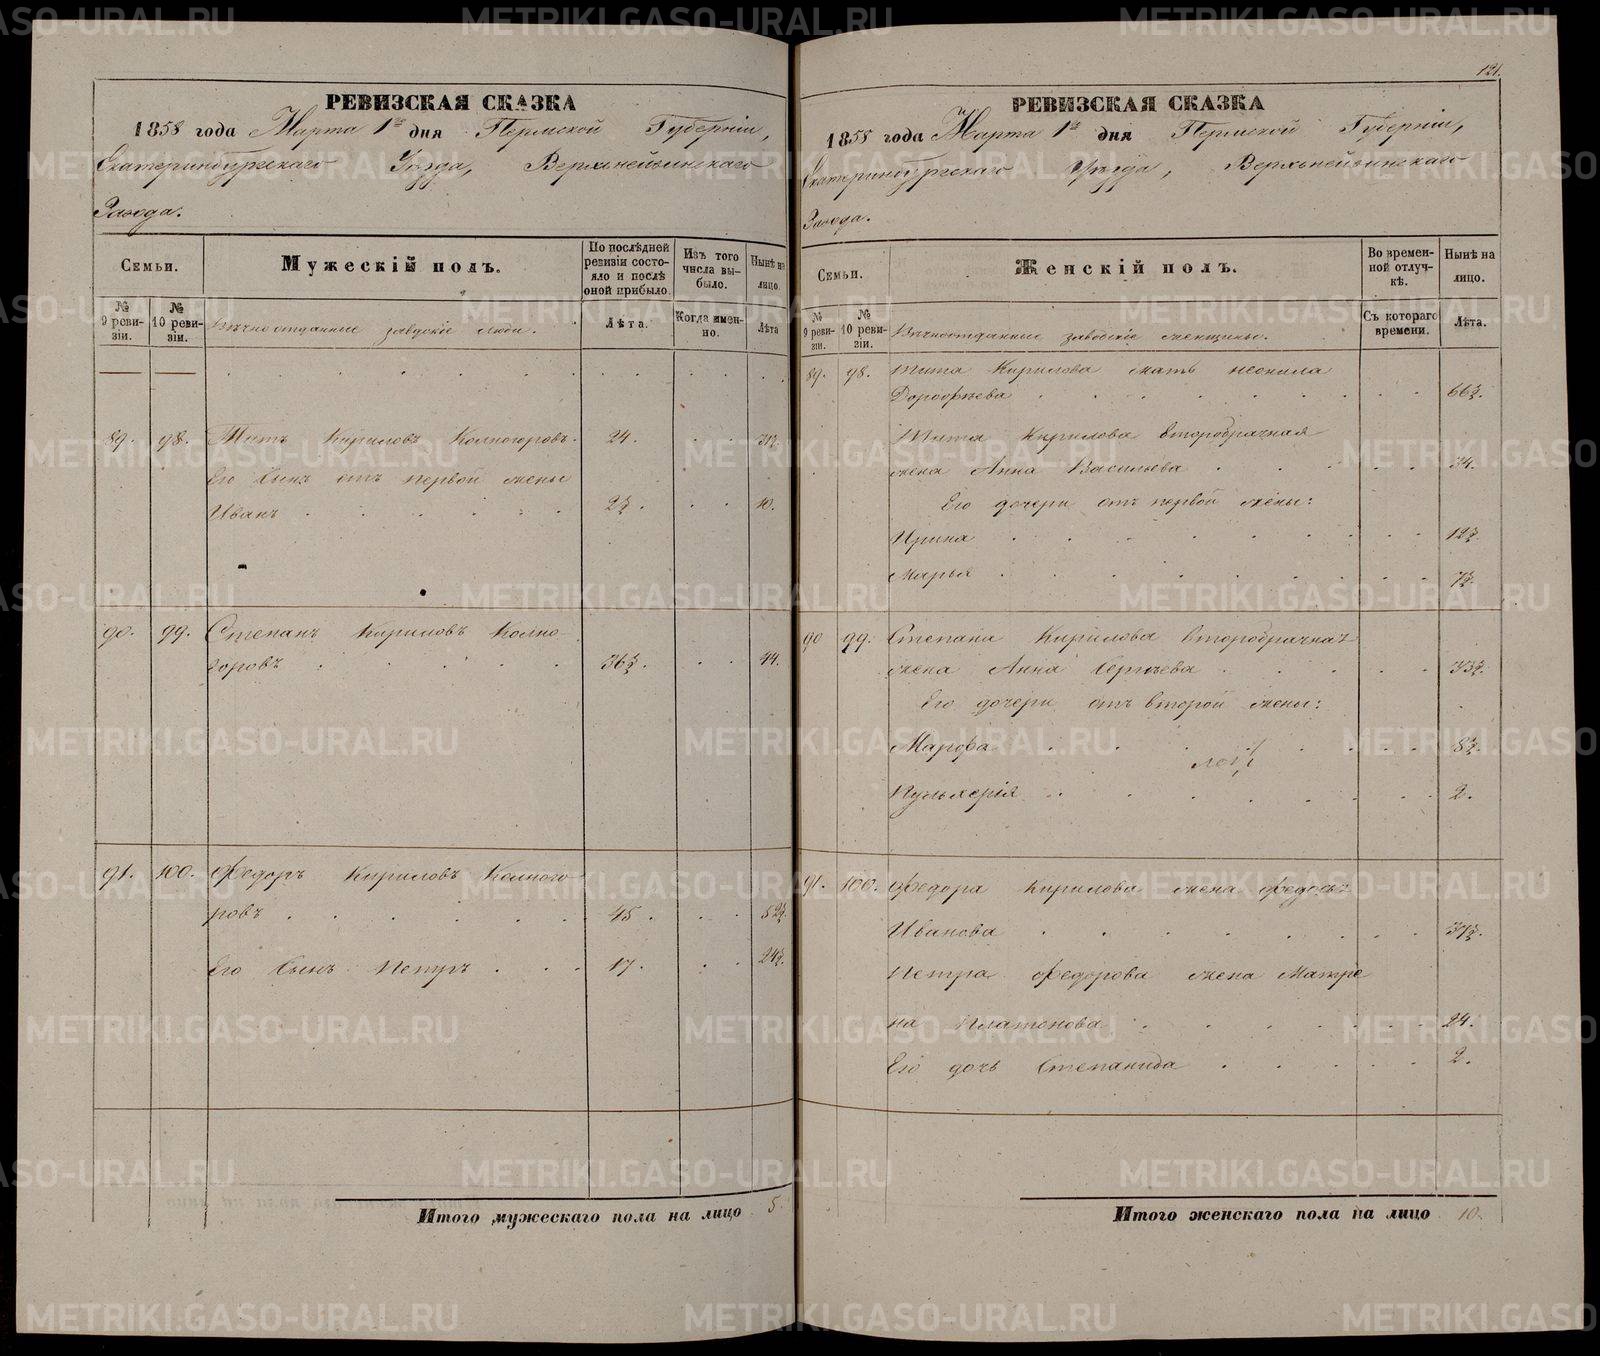 РЕВИЗСКАЯ СКАЗКА
1858 года Марта 1го дня Пермской Губерніи,
Екатеринбургскаго Уѣзда, Верхънейвинскаго
Завода.
Семьи.
Мужескій полъ.
По послѣдней ревизіи состояло и послѣ оной прибыло.
Изъ того числа выбыло.
Нынѣ на лицо.
№ 9 ревизіи.
№ 10 ревизіи.
Вѣчноотданные заводскіе люди.
Лѣта.
Когда именно.
Лѣта
89. 98. Титъ Кириловъ Колногоровъ. 24.
Его сынъ отъ первой жены
Иванъ 10.
90. 99. Степанъ Кириловъ Колно-
горовъ 36½. 44.
91. 100. Федоръ Кириловъ Колного
ровъ 45. 52½.
Его сынъ Петръ 17. 24½.
Итого мужескаго пола на лицо 5.
121.
РЕВИЗСКАЯ СКАЗКА
1858 года Марта 1го дня Пермской Губерніи,
Екатеринбургскаго Уѣзда, Верхънейвинскаго
Завода.
Семьи.
Женскій полъ.
Во временной отлучкѣ.
Нынѣ на лицо.
№ 9 ревизіи.
№ 10 ревизіи.
Вѣчноотданные заводскіе женщины.
Съ котораго времени.
Лѣта.
89. 98. Тита Кирилова мать Неонила
Дорофѣева 66½.
Тита Кирилова второбрачная
жена Анна Васильева 34.
Его дочери отъ первой жены:
Ирина 12½.
Марья 7½.
90 99. Степана Кирилова второбрачная
жена Анна Сергѣева 33½.
Его дочери отъ второй жены:
Марфа 8½.
Пульхерія 2.
91. 100. Федора Кирилова жена Федосья
Иванова 37½.
Петра Федорова жена Матре
на Платонова 24.
Его дочь Степанида 2.
Итого женскаго пола на лицо 10.
METRIKI.GASO-URAL.RU